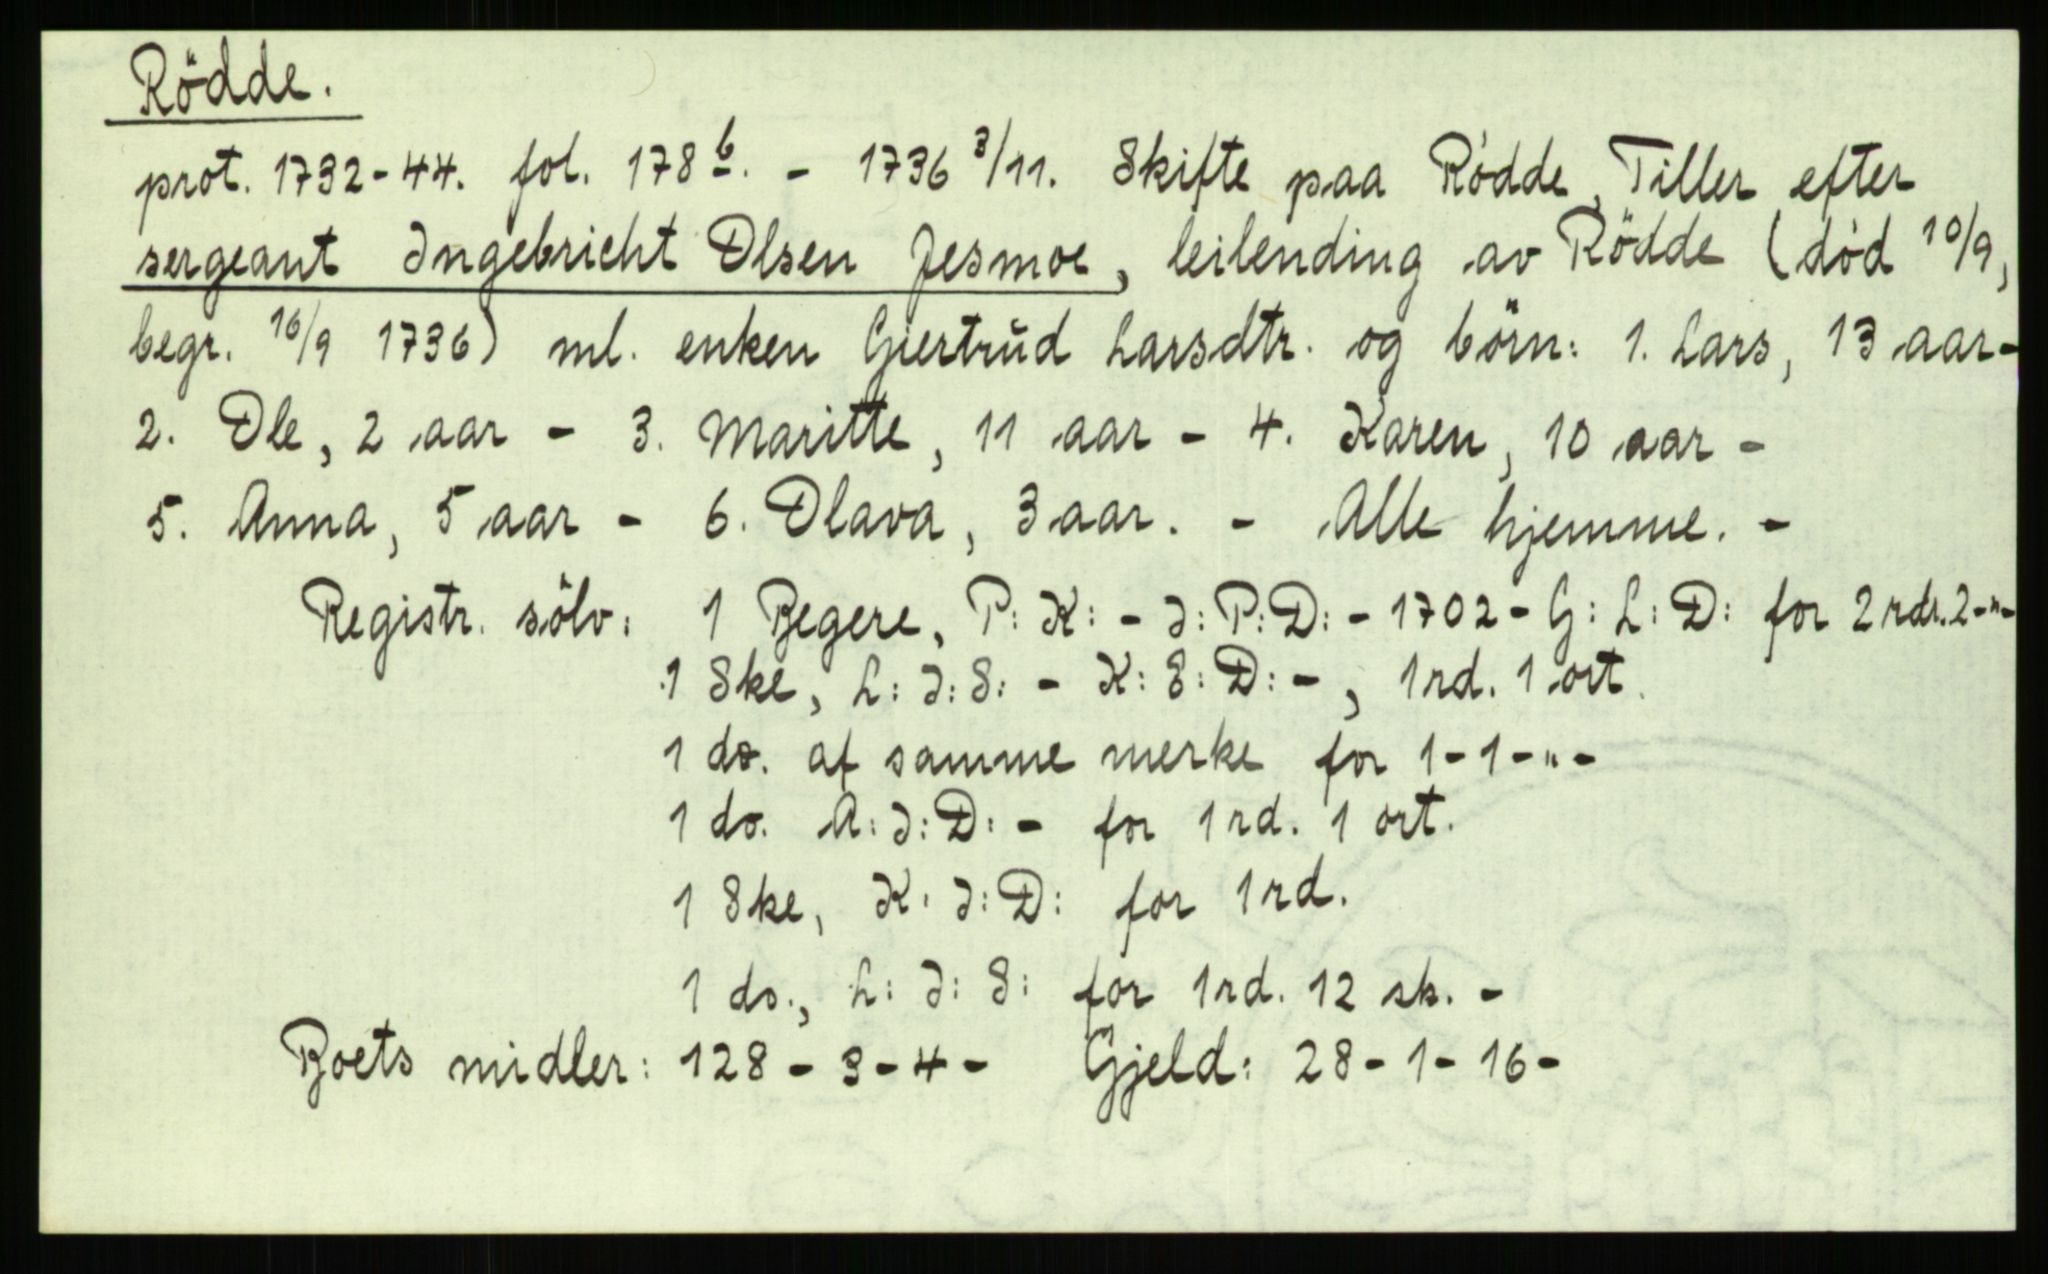 Rödde.
prot. 1732-44. fol. 178 b. - 1736 3/11. Skifte paa Rödde, Tiller efter
sergeant Ingebricht Olsen Jesmoe, leilending av Rödde (död 10/9,
begr. 16/9 1736) ml. enken Giertrŭd Larsdtr. og börn: 1. Lars, 13 aar-
2. Ole, 2 aar - 3. Maritte, 11 aar - 4. Karen, 10 aar -
5. Anna, 5 aar - 6. Olava, 3 aar. - Alle hjemme. -
Registr. sölv: 1 Begere, P: K: - I: P: D: - 1702 - G: L: D: for 2 rdr. 2-"-
1 Ske, L: I: S: - K: E: D: -, 1 rd. 1 ort.
1 do. af samme merke for 1-1-"-
1 do. A: I: D: - for 1 rd. 1 ort.
1 Ske, K. I: D: for 1 rd.
1 do., L: I: S: for 1 rd. 12 sk. -
Boets midler: 128 - 3 - 4 - Gjeld: 28 - 1 - 16 -